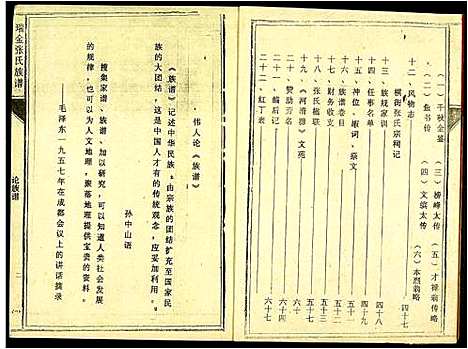 (二) 千秋金鉴 (三) 榜峰太传 (五) 才禄翁传略
(一) 鱼书传 (四) 文缤太传 (六) 本烈翁略
十二、风物志 四十七
横街张氏宗祠记
十三、族规家训 四十八
十四、任事名单 四十九
十五、神位、嘏词、祭文
十六、族谱卷目 五十一
十七、财务收支 五十二
十八、张氏楹联 五十三
十九、《河清颂》文苑
二十、赞助芳名 六十
二十一、编后记 六十
二十二、红丁表 六十七
伟人论《族谱》
《族谱》记述中华民族:由宗族的团结扩充至国家民
族的大团结,这是中国人才有的传统观念,应妥加利用。
孙中山语
搜集家谱、族谱、加以研究,可以知道人类社会发展
的规律,也可以为人文地理,聚落地理提供宝贵的资料。
毛泽东一九五七年在成都会议上的讲话摘录
瑞金张氏族谱
论族谱
二